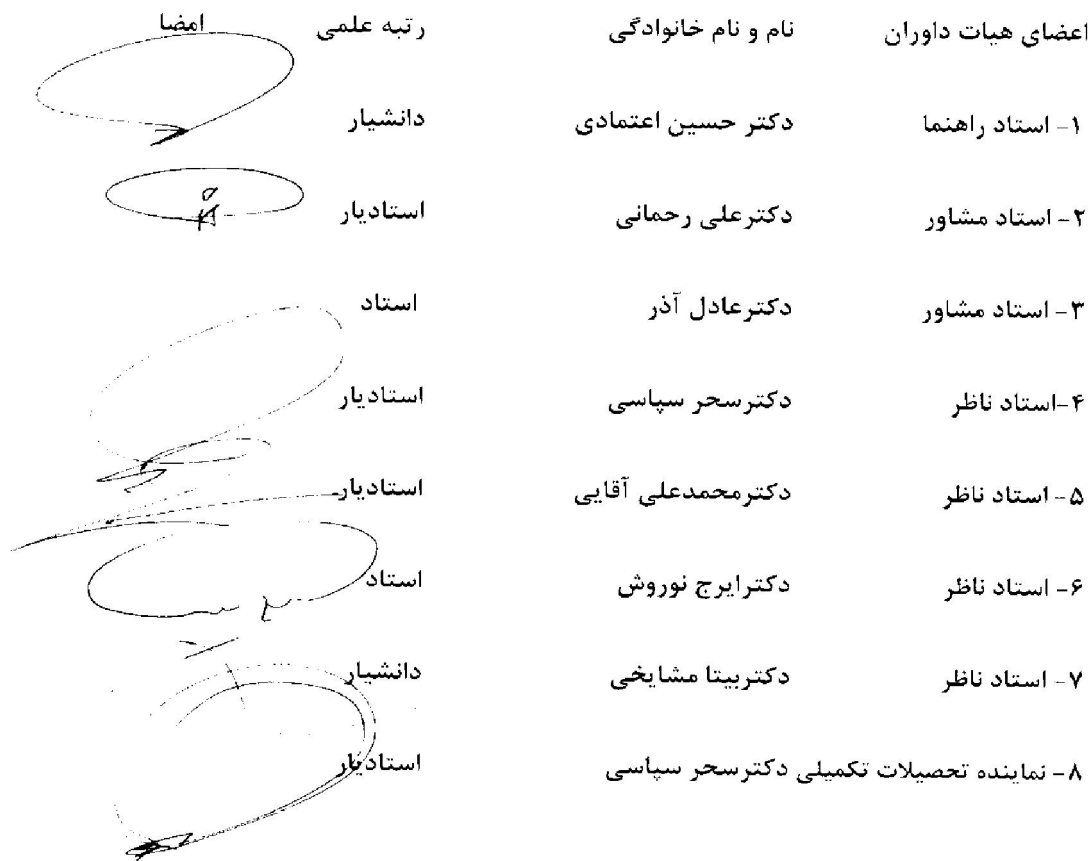 اعضای هیات داوران نام و نام خانوادگی رتبه علمی امضا
۱- استاد راهنما دکتر حسین اعتمادی دانشیار
۲- استاد مشاور دکترعلی رحمانی استادیار
۳- استاد مشاور دکترعادل آذر استاد
۴-استاد ناظر دکترسحر سپاسی استادیار
۵- استاد ناظر دکترمحمدعلی آقایی استادیار
۶- استاد ناظر دکترایرج نوروش استاد
۷- استاد ناظر دکتربیتا مشایخی دانشیار
۸- نماینده تحصیلات تکمیلی دکترسحر سپاسی استادیار